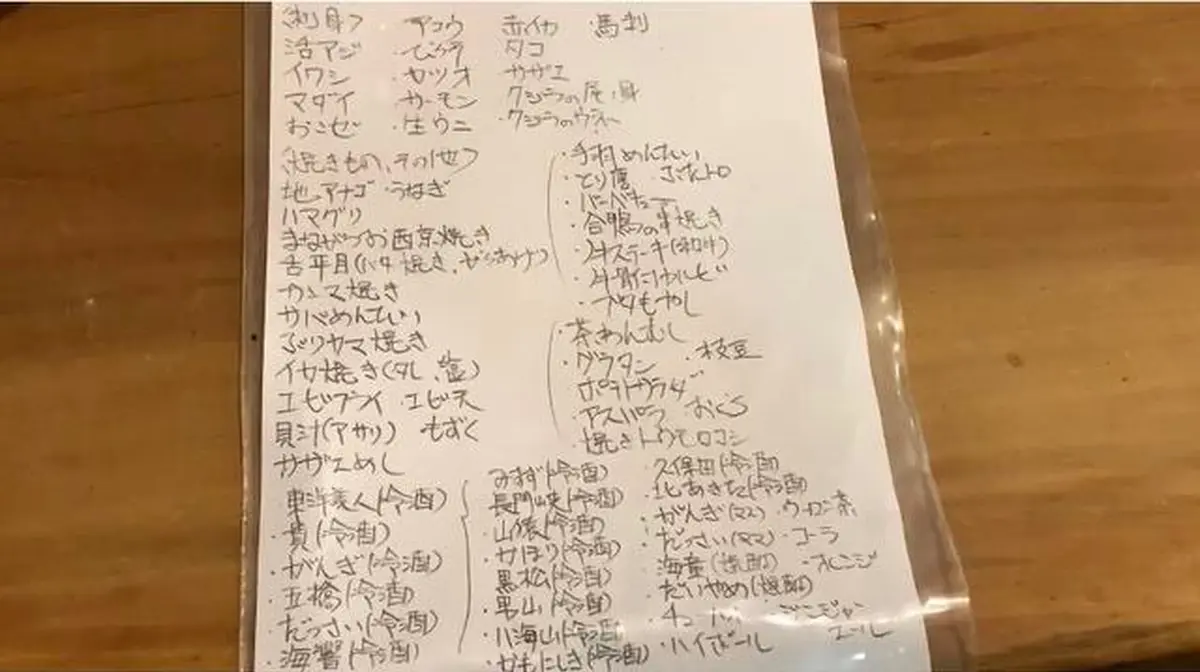 (刺身) アコウ 赤イカ ・馬刺
活アジ ・ひらす タコ
イワシ ・カツオ サザエ
マダイ サーモン クジラの尾の身
おこぜ ・生ウニ ・クジラのウネ
(焼きもの、その他)
地アナゴ ・うなぎ
ハマグリ
まながつお西京焼き
舌平目(バタ焼き、からあげ)
サンマ焼き
サバめんたい
ぶりカマ焼き
イカ焼き(タレ、塩)
エビフライ エビ天
貝汁(アサリ) もずく
サザエめし
・手羽めんたい
・とり皮 ぶたトロ
・バーベキュー
・合鴨の串焼き
・牛ステーキ(和牛)
・牛骨付カルビ
・ブタもやし
・茶わんむし
・グラタン ・枝豆
ポテトサラダ
・アスパラ おくら
・焼きトウモロコシ
東洋美人(冷酒)
・貴(冷酒)
・がんぎ(冷酒)
・五橋(冷酒)
・だっさい(冷酒)
・海響(冷酒)
みすず(冷酒)
長門峡(冷酒)
・山猿(冷酒)
・かほり(冷酒)
黒松(冷酒)
・男山(冷酒)
・八海山(冷酒)
・かもにしき(冷酒)
・久保田(冷酒)
・北あきた(冷酒)
・がんぎ(マス) ・ウーロン茶
・だっさい(マス) ・コーラ
海童(焼酎) ・オレンジ
だいやめ(焼酎)
・チューハイ ・ジンジャー
エール
・ハイボール